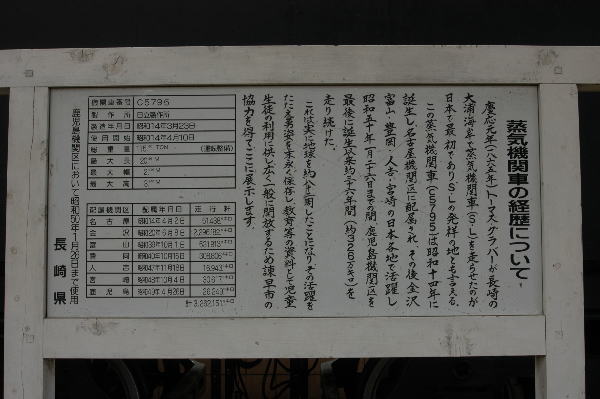 蒸気機関車の経歴について
慶応元年(一八六五年)トーマスグラバーが長崎の
大浦海岸で蒸気機関車(SL)を走らせたのが
日本で最初でありSLの発祥の地とも言える。
この蒸気機関車(C5796)は昭和十四年に
誕生し名古屋機関区に配属され、その後金沢
富山・豊岡・人吉・宮崎の日本各地で活躍し
昭和五十年一月二十六日までの間鹿児島機関区を
最後に誕生以来約三十六年間(約326万キロ)を
走り続けた。
これは実に地球を約八十一周したことになりその活躍を
たたえ勇姿を末永く保存し教育等の資料として児童
生徒の利用に供し広く一般に開放するため諫早市の
協力を得てここに展示します。
機関車番号 C5796
製作所 日立製作所
製造年月日 昭和14年3月23日
使用開始 昭和14年4月10日
総重量 TON (運転整備)
最大長 20
最大幅 2
最大高 3
配属機関区 配属年月日 走行粁
名古屋 昭和14年4月2日
金沢 昭和20年6月8日
富山
豊岡
人吉
宮崎
鹿児島 昭和49年4月26日
計
鹿児島機関区において昭和50年1月26日まで使用
長崎県